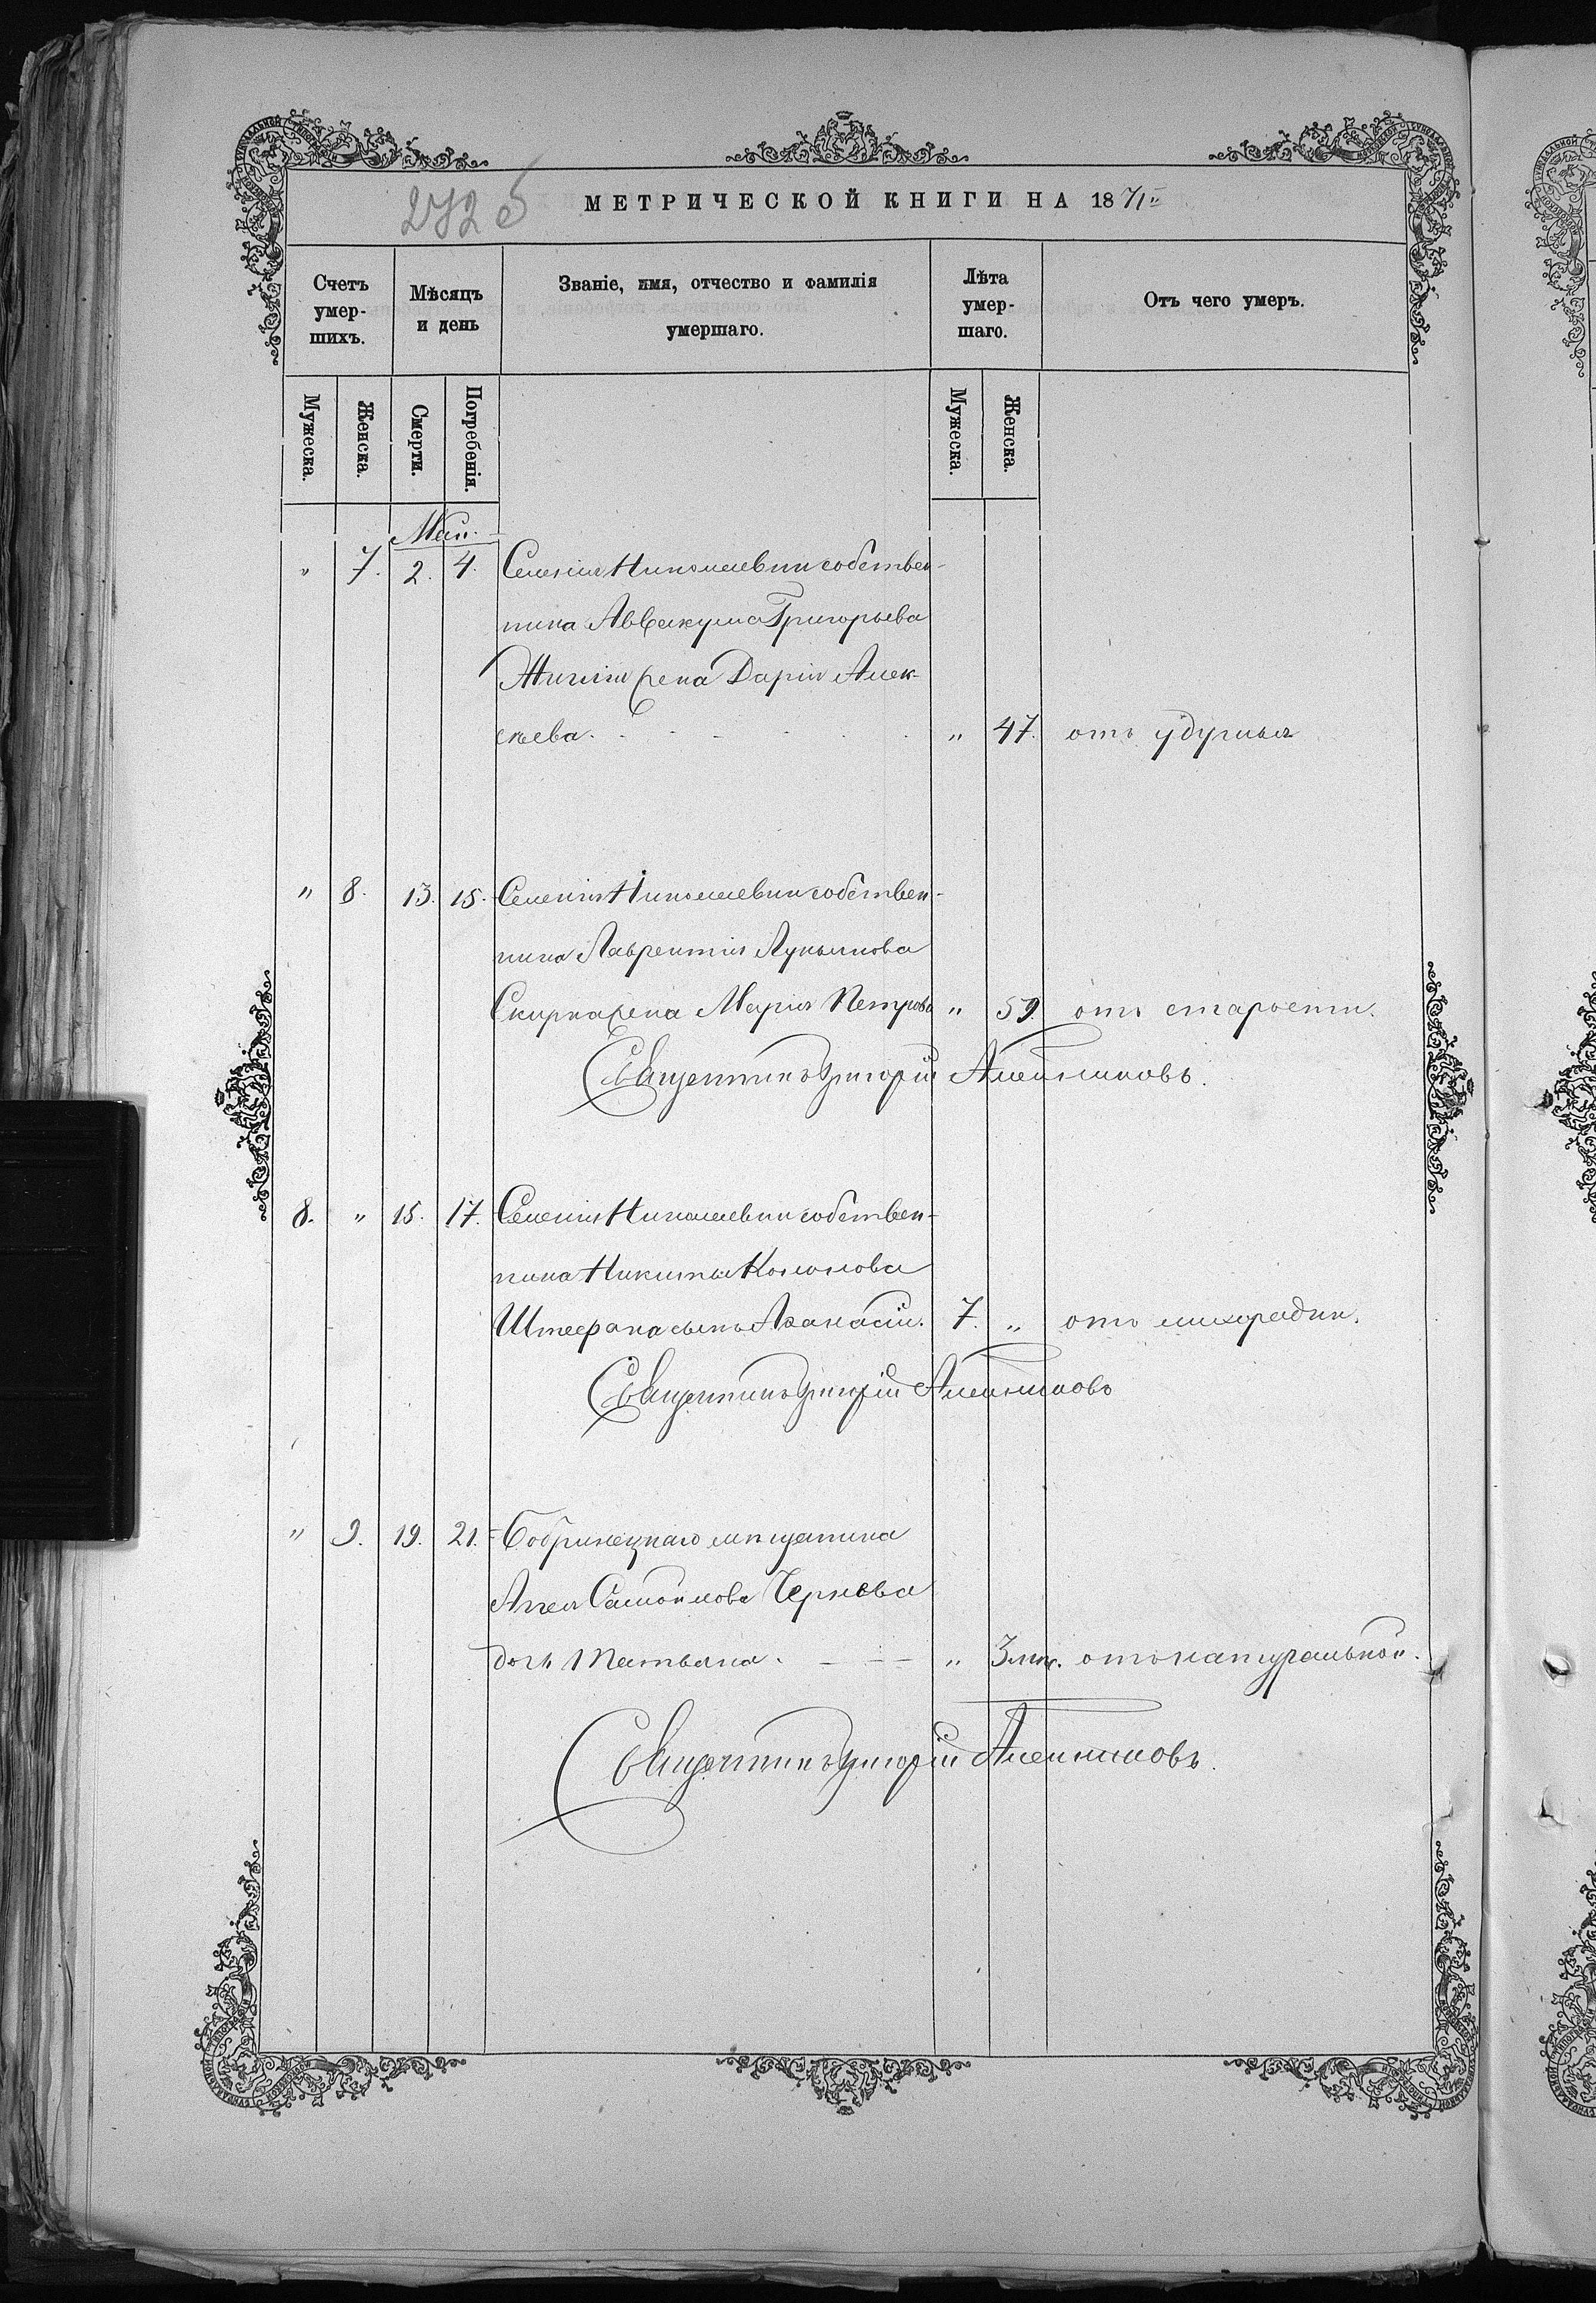 272 б
МЕТРИЧЕСКОЙ КНИГИ НА 1871
Счетъ умершихъ.
Мѣсяцъ и день
Званіе, имя, отчество и фамилія умершаго.
Лѣта умершаго.
Отъ чего умеръ.
Мужеска.
Женска.
Смерти.
Погребенія.
Мужеска.
Женска.
Маи.
" 7. 2. 4. Селенія Николаевки собствен-
ника Аввакума Григорьева
жена Дарія Алек-
сѣева. " 47. отъ удушья
" 8. 13. 15. Селенія Николаевки собствен-
ника Лаврентія Лукьянова
Скирка жена Марія Петрова " 59. отъ старости.
Священникъ Григорій Алейниковъ.
8. " 15. 17. Селенія Николаевки собствен-
ника Никиты
сынъ Аѳанасій. 7. " отъ лихорадки.
Священникъ Григорій Алейниковъ
" 9. 19. 21. Бобринецкаго мѣщанина
Самойлова
дочь Татьяна. " 3 мѣс. отъ натуральной.
Священникъ Григорій Алейниковъ.